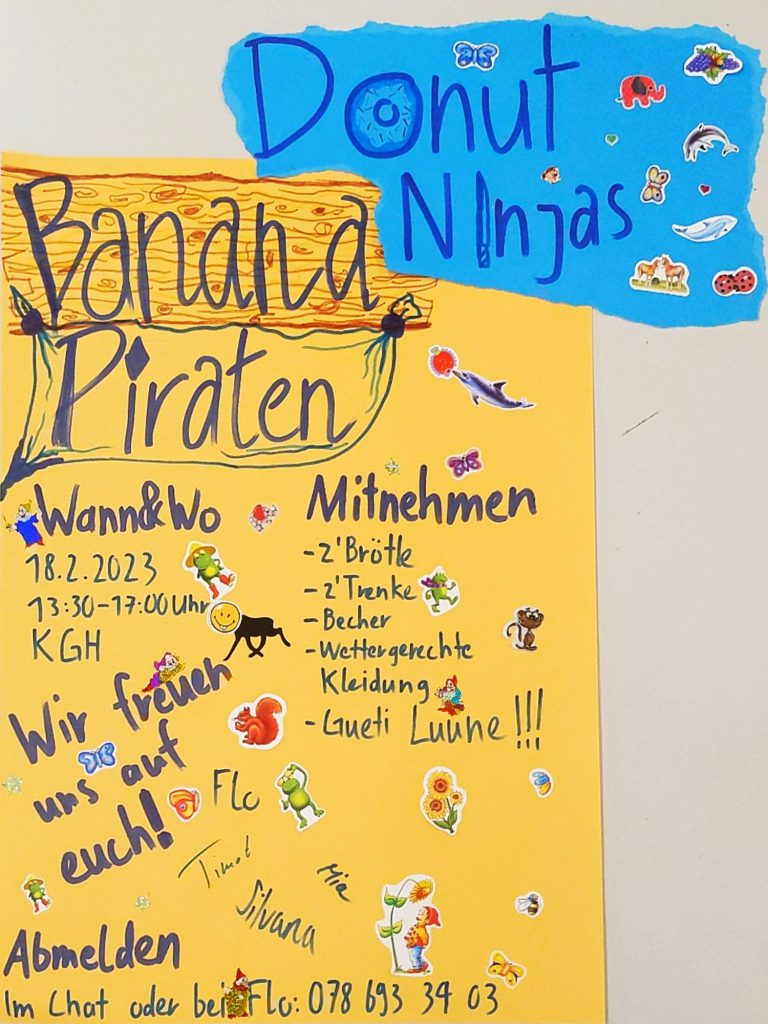 Donut
Ninjas
Banana
Piraten
Wann&Wo
18.2.2023
13:30-17:00 Uhr
KGH
Mitnehmen
-z'Brötle
-z'Trenke
-Becher
-Wettergerechte
Kleidung
-Gueti Luune!!!
Wir freuen
uns auf
euch!
Flo
Timot
Mia
Silvana
Abmelden
Im Chat oder bei Flo: 078 693 34 03